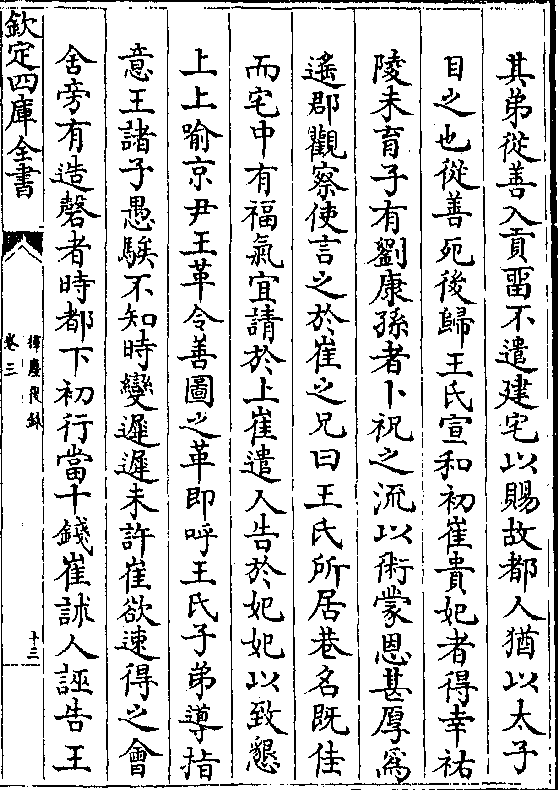 其弟從善入貢畱不遣建宅以賜故都人猶以太子
目之也從善死後歸王氏宣和初崔貴妃者得幸祐
陵未育子有劉康孫者卜祝之流以術蒙恩甚厚為
遙郡觀察使言之於崔之兄曰王氏所居巷名既佳
而宅中有福氣宜請於上崔遣人告於妃妃以致懇
上上喻京尹王革令善圖之革即呼王氏子弟導指
意王諸子愚騃不知時變遲遲未許崔欲速得之會
舍旁有造磬者時都下初行當十錢崔詸人誣告王
欽定四庫全書
揮麈後錄
卷三
十三